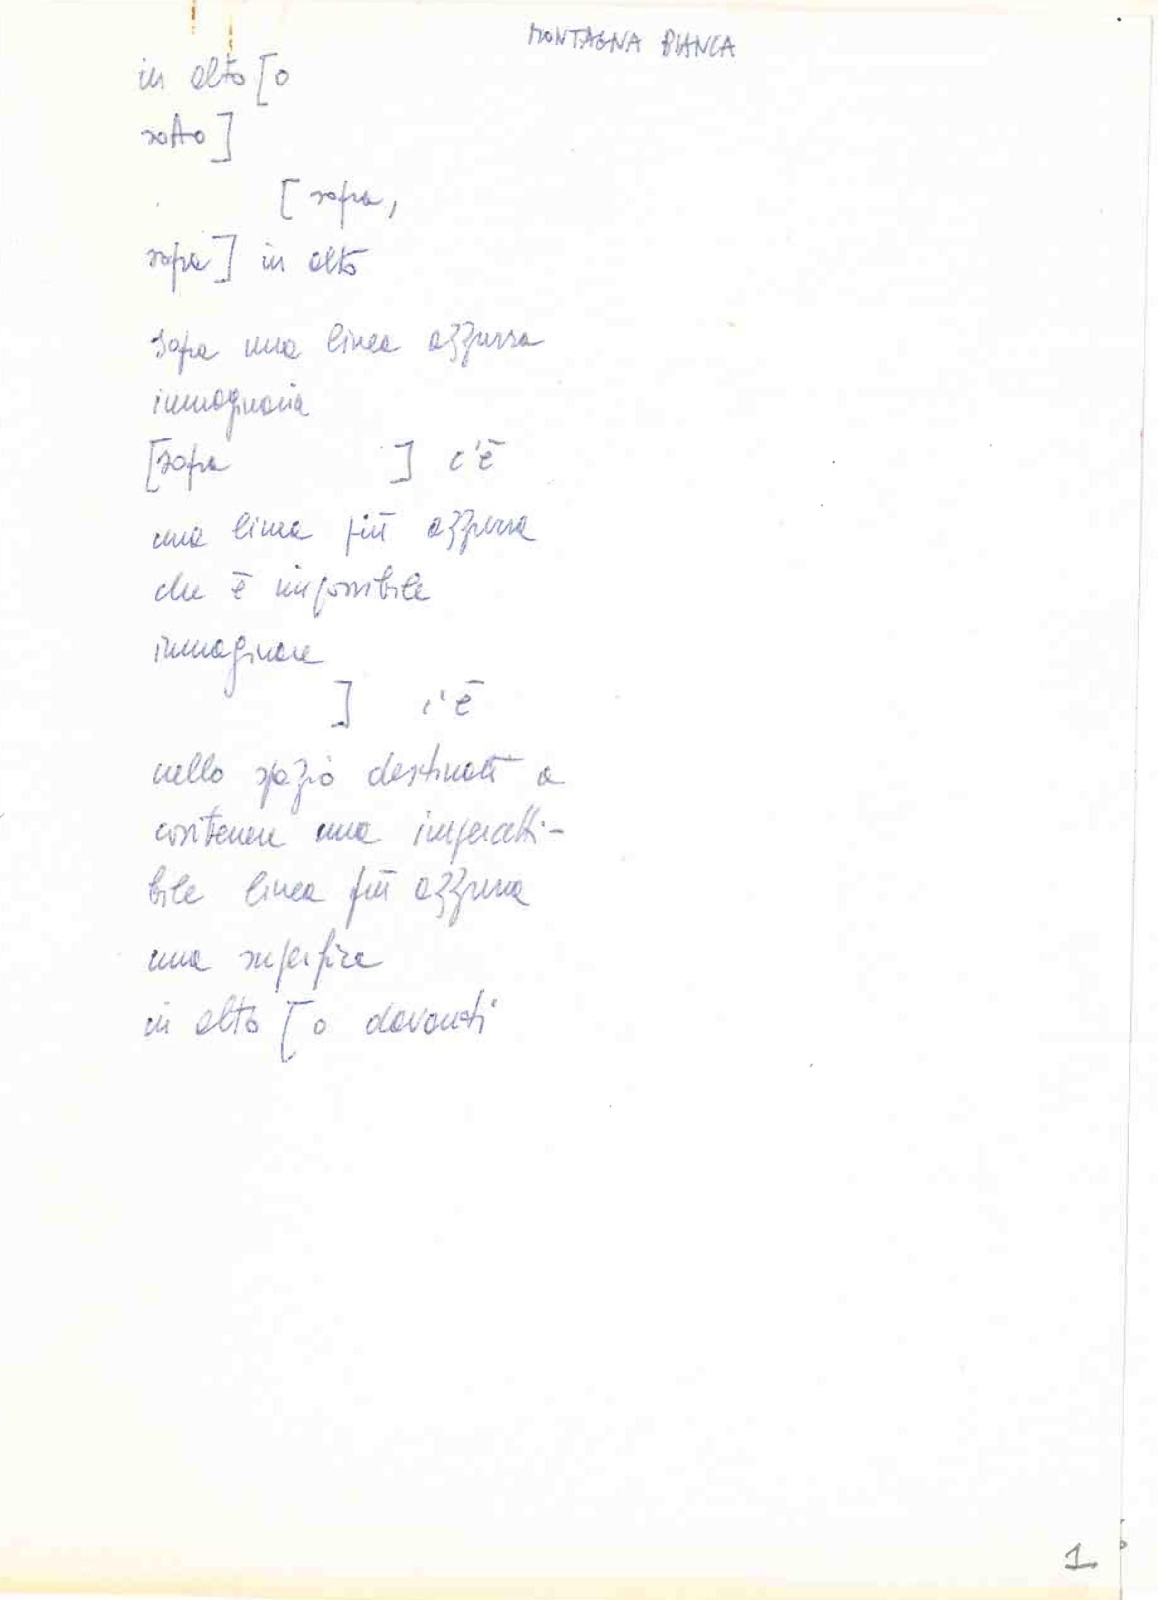 MONTAGNA BIANCA
in alto [o
sotto]
[sopra,
sopra] in alto
sopra una linea azzurra
immaginaria
[sopra ] c'è
una linea più azzurra
che è impossibile
immaginare
] c'è
nello spazio destinato a
contenere una impercetti-
bile linea più azzurra
una superfice
in alto [o davanti
1